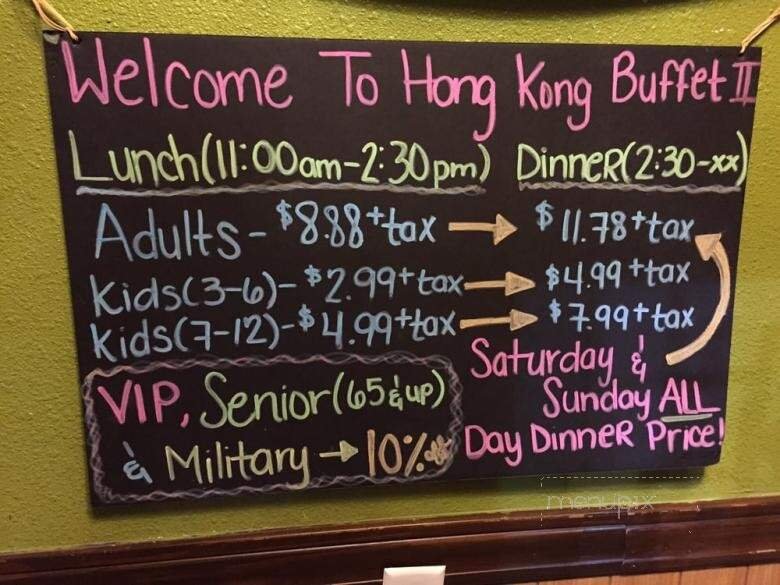 Welcome To Hong Kong Buffet II
Lunch(11:00am-2:30pm) Dinner(2:30-xx)
Adults- $8.88+tax → $11.78+tax
Kids(3-6)- $2.99+tax → $4.99+tax
Kids(7-12)-$4.99+tax → $7.99+tax
Saturday &
Sunday ALL
Day Dinner Price!
VIP, Senior(65 & up)
& Military → 10% off
menupix